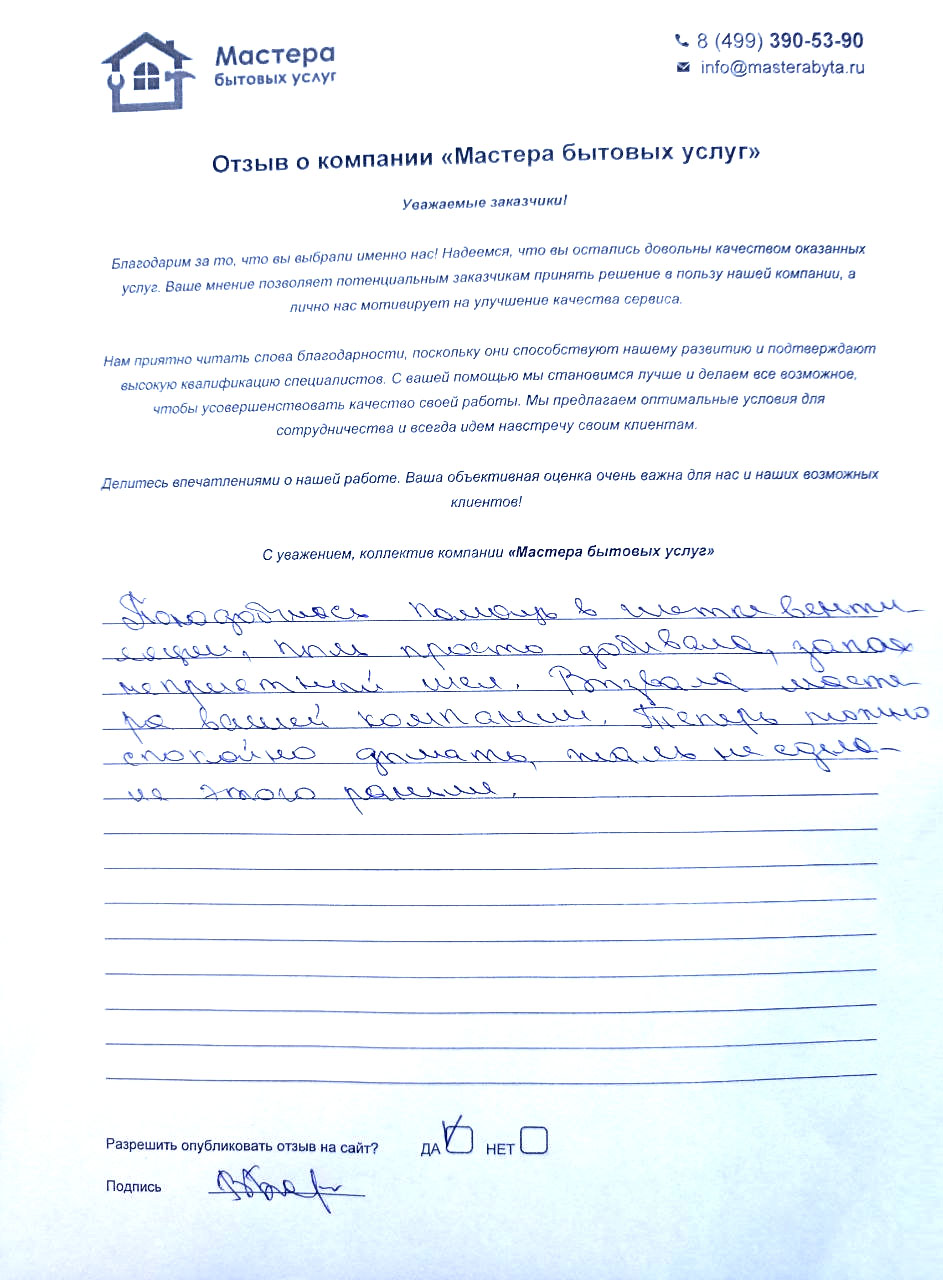 Мастера
бытовых услуг
8 (499) 390-53-90
info@masterabyta.ru
Отзыв о компании «Мастера бытовых услуг»
Уважаемые заказчики!
Благодарим за то, что вы выбрали именно нас! Надеемся, что вы остались довольны качеством оказанных
услуг. Ваше мнение позволяет потенциальным заказчикам принять решение в пользу нашей компании, а
лично нас мотивирует на улучшение качества сервиса.
Нам приятно читать слова благодарности, поскольку они способствуют нашему развитию и подтверждают
высокую квалификацию специалистов. С вашей помощью мы становимся лучше и делаем все возможное,
чтобы усовершенствовать качество своей работы. Мы предлагаем оптимальные условия для
сотрудничества и всегда идем навстречу своим клиентам.
Делитесь впечатлениями о нашей работе. Ваша объективная оценка очень важна для нас и наших возможных
клиентов!
С уважением, коллектив компании «Мастера бытовых услуг»
Понадобилась помощь в чистке венти-
ляции, пыль просто добивала, запах
неприятный шел. Вызвала масте-
ра вашей компании. Теперь можно
спокойно дышать, жаль не сдела-
ла этого раньше.
Разрешить опубликовать отзыв на сайт? ДА НЕТ
Подпись